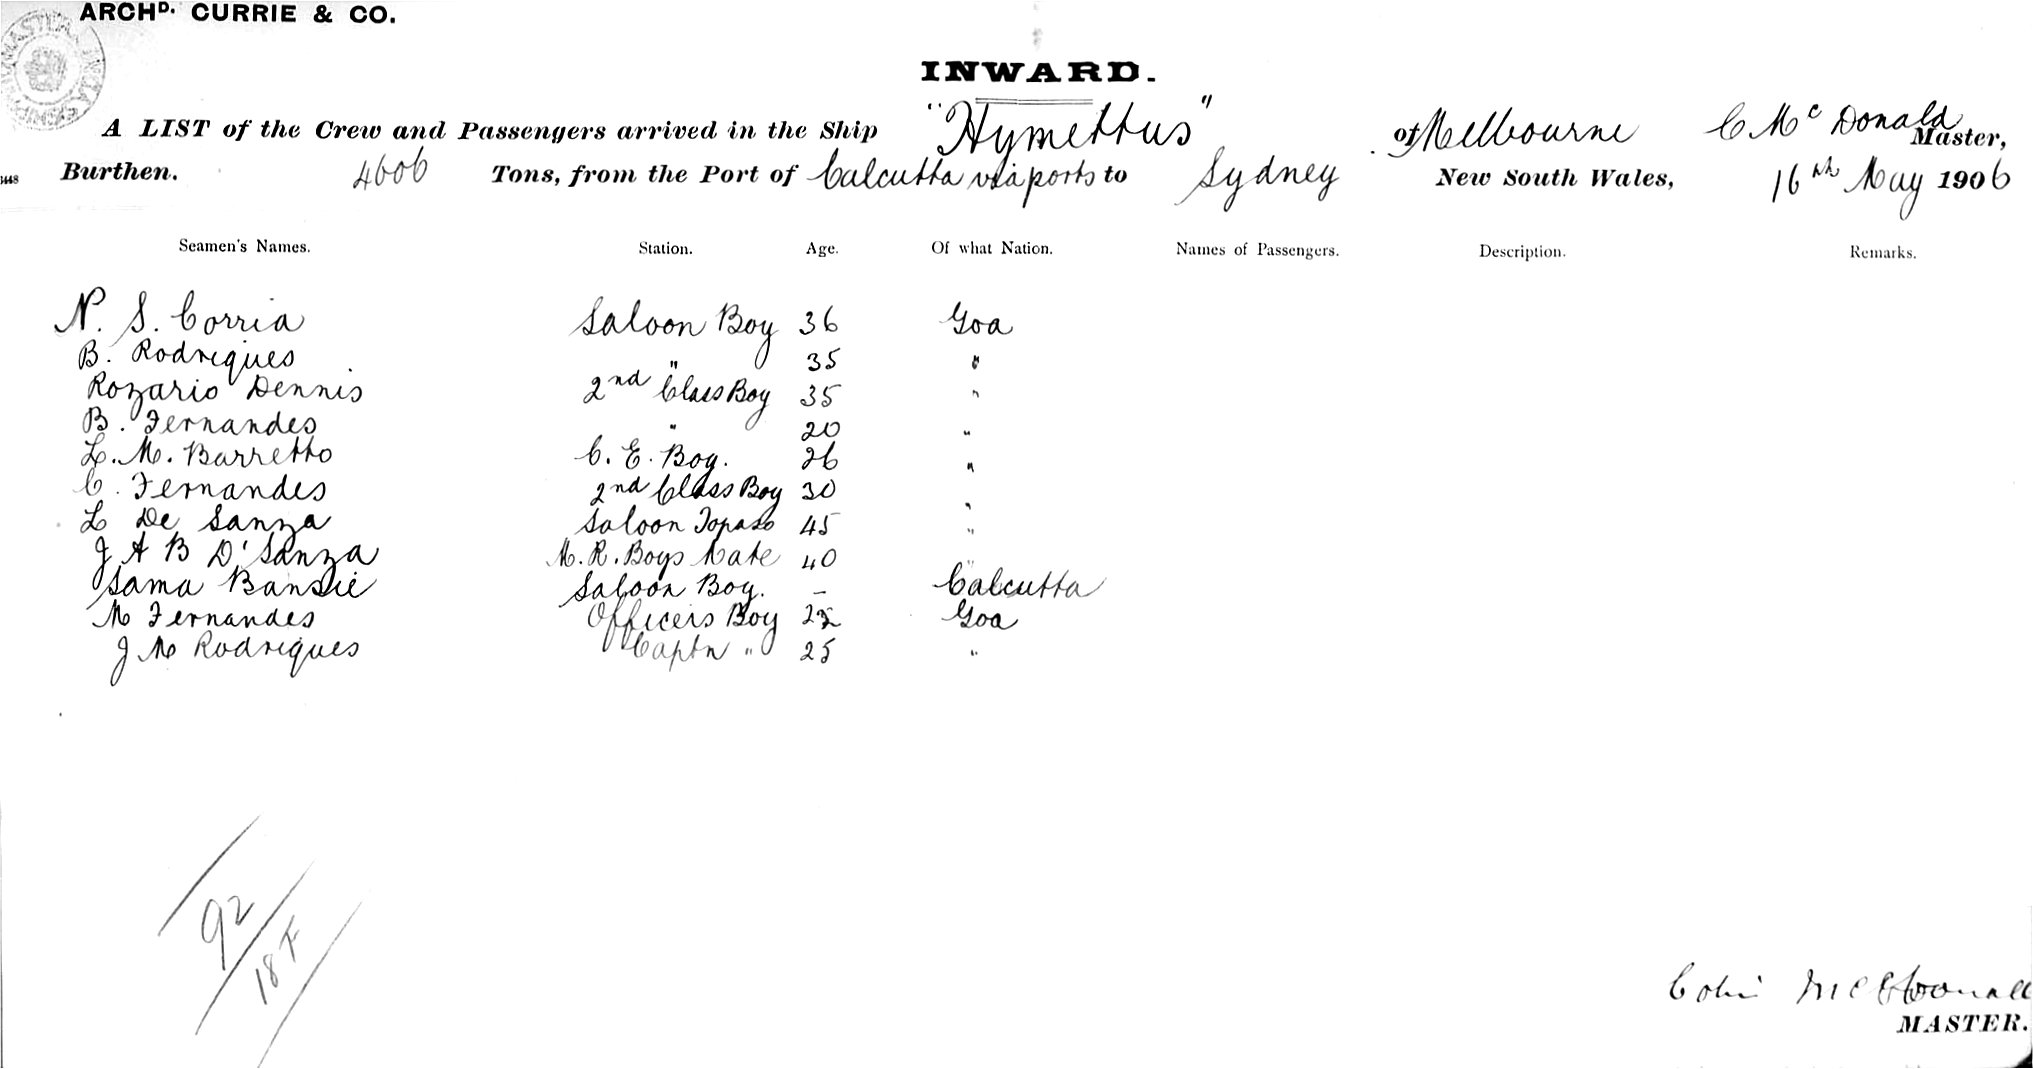 ARCHD. CURRIE & CO.
INWARD.
A LIST of the Crew and Passengers arrived in the Ship "Hymettus" of Melbourne C McDonald Master,
Burthen. 4606 Tons, from the Port of Calcutta via ports to Sydney New South Wales, 16th May 1906
Seamen's Names. Station. Age. Of what Nation. Names of Passengers. Description. Remarks.
N. S. Corria Saloon Boy 36 Goa
B. Rodriques " 35 "
Rozario Dennis 2nd Class Boy 35 "
B. Fernandes " 20 "
L. M. Barretto C. E. Boy. 26 "
C. Fernandes 2nd Class Boy 30 "
L De Sanza Saloon Topass 45 "
J A B D'Sanza M. R. Boys Mate 40 "
Sama Bansie Saloon Boy. – Calcutta
M Fernandes Officers Boy Goa
J M Rodriques Captn " 25 "
92
18 F
Colin McDonald
MASTER.